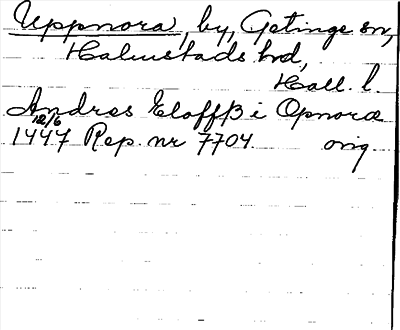 Uppnora, by, Getinge sn,
Halmstads hrd,
Hall. l.
Andres Eloffß i Opnoræ
12/6
1447 Rep. nr 7704. orig.